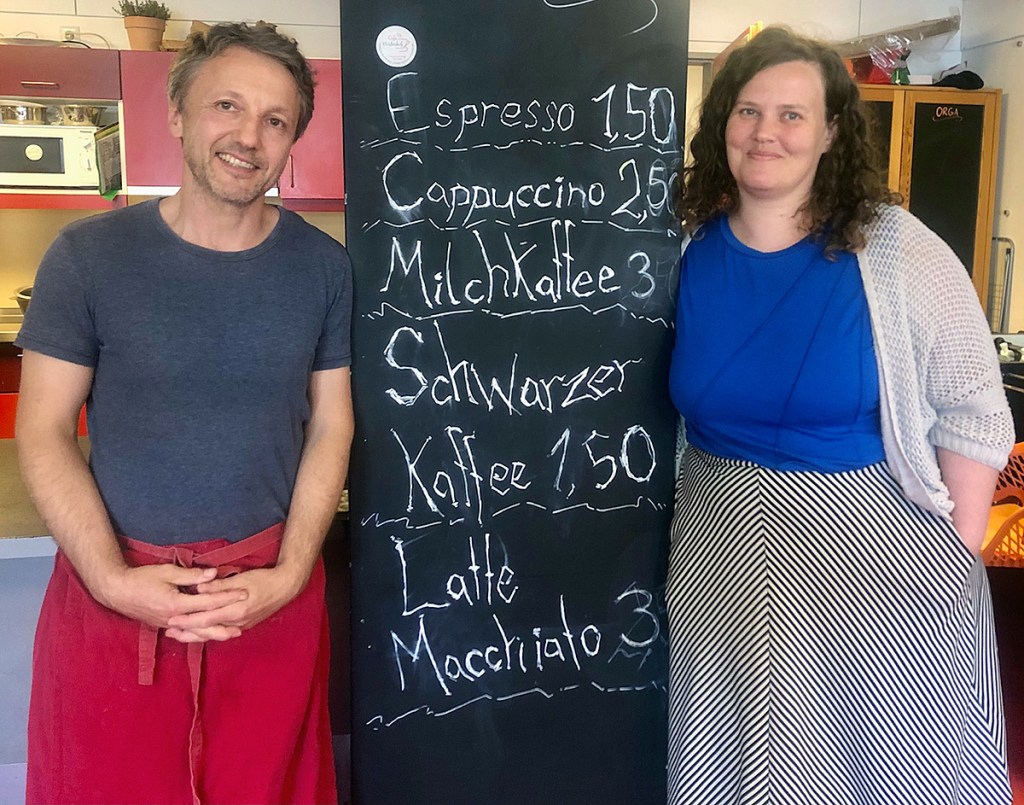 Espresso 1,50
Cappuccino 2,50
Milchkaffee 3
Schwarzer
Kaffee 1,50
Latte
Macchiato 3
ORGA